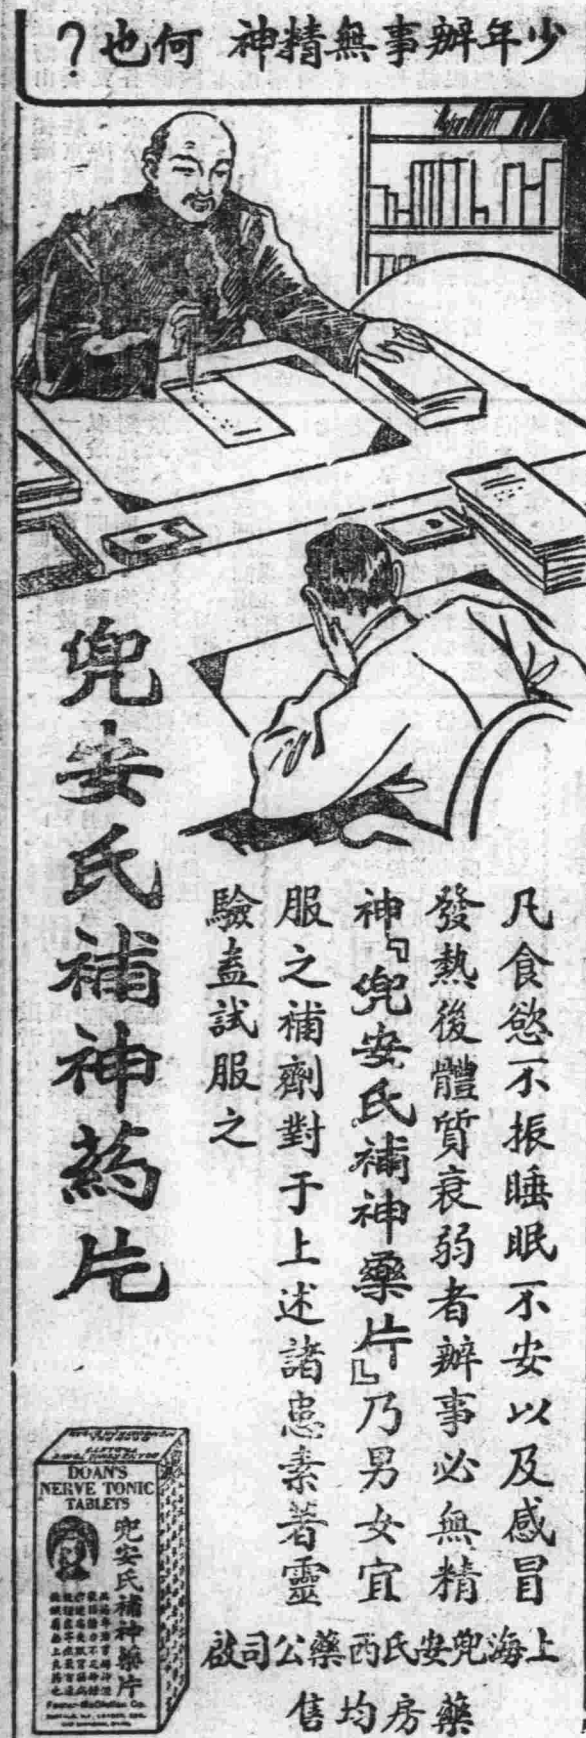 少年辦事無精神 何也?
凡食慾不振睡眠不安以及感冒
發熱後體質衰弱者辦事必無精
神『兜安氏補神藥片』乃男女宜
服之補劑對于上述諸患素著靈
驗盍試服之
上海兜安氏西藥公司啟
藥房均售
兜安氏補神药片
DOAN'S
NERVE TONIC
TABLETS
兜安氏補神藥片
Foster-McClellan Co.